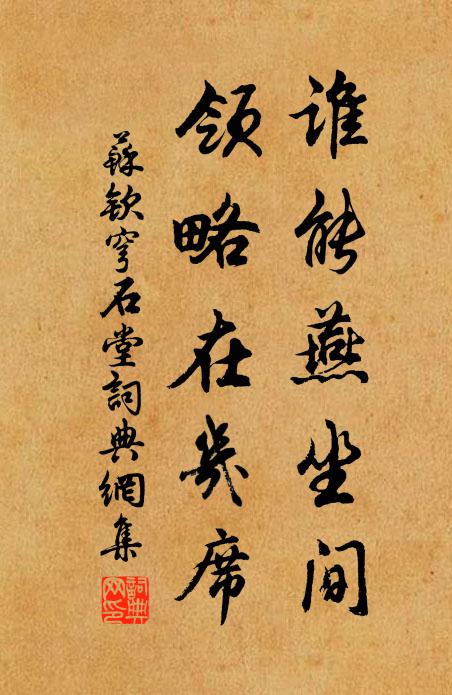 谁能燕坐间
领略在几席
蘇欽穹石堂詞典網集
詞典网印